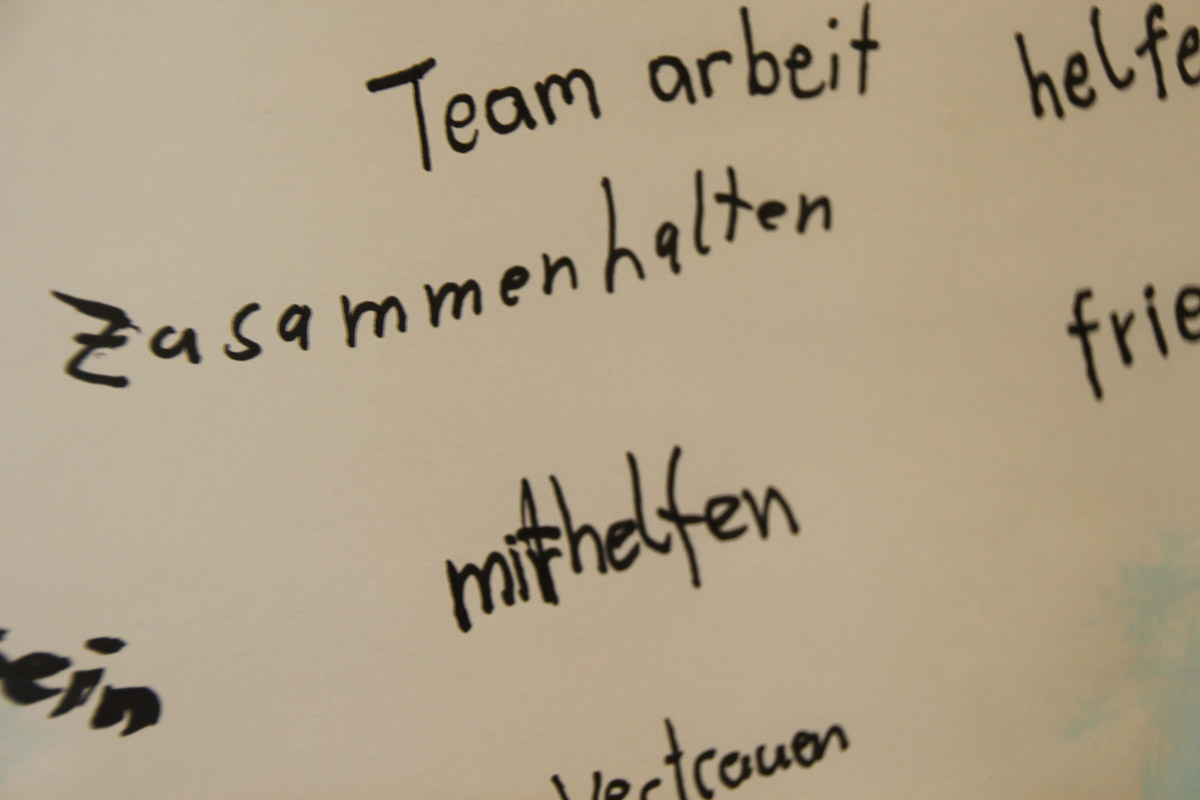 Team arbeit
helfe
Zasammenhalten
frie
mithelfen
ein
Vertrauen